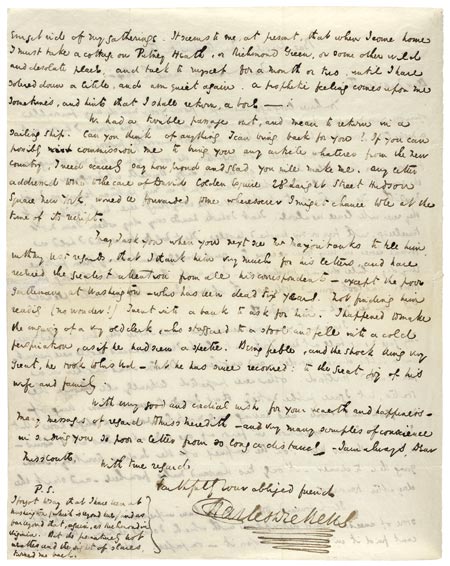 get rid of my gatherings. It seems to me, at present, that when I come home
I must take a cottage on Putney Heath, or Richmond Green, or some other wild
and desolate place, and talk to myself for a month or two, until I have
sobered down a little, and am quiet again. A prophetic feeling comes upon me
sometimes, and hints that I shall return, a bore —
We had a terrible passage out, and mean to return in a
sailing ship. Can you think of anything I can bring back for you? If you can
possibly commission me to bring you any article whatever from the new
country, I need scarcely say how proud and glad you will make me. Any letter
addressed to me to the care of David Colden Esquire 28 Laight Street Hudson
Square New York, would be forwarded to me wheresoever I might chance to be at the
time of its receipt.
May I ask you when you next see Mr Marjoribanks to tell him
with my best regards, that I thank him very much for his letters, and have
received the greatest attention from all his correspondents – except the poor
gentleman at Washington – who has been dead six years. Not finding him
readily (no wonder!) I went into a bank to ask for him. I happened to make
the inquiry of a very old clerk, who staggered to a stool and fell into a cold
perspiration, as if he had seen a spectre. Being feeble, and the shock being very
great, he took to his bed – but he has since recovered: to the great joy of his
wife and family.
With my good and cordial wishes for your health and happiness –
many messages of regard to Miss Meredith – and very many scruples of conscience
in sending you so poor a letter from so long a distance! – I am always Dear
Miss Coutts
With true regard
Faithfully your obliged friend
Charles Dickens
P.S.
I forgot to say that I have been at
Washington (which is beyond
and that I have been in
Virginia. But the prematurely hot
weather and the sight of slaves
turned me back.